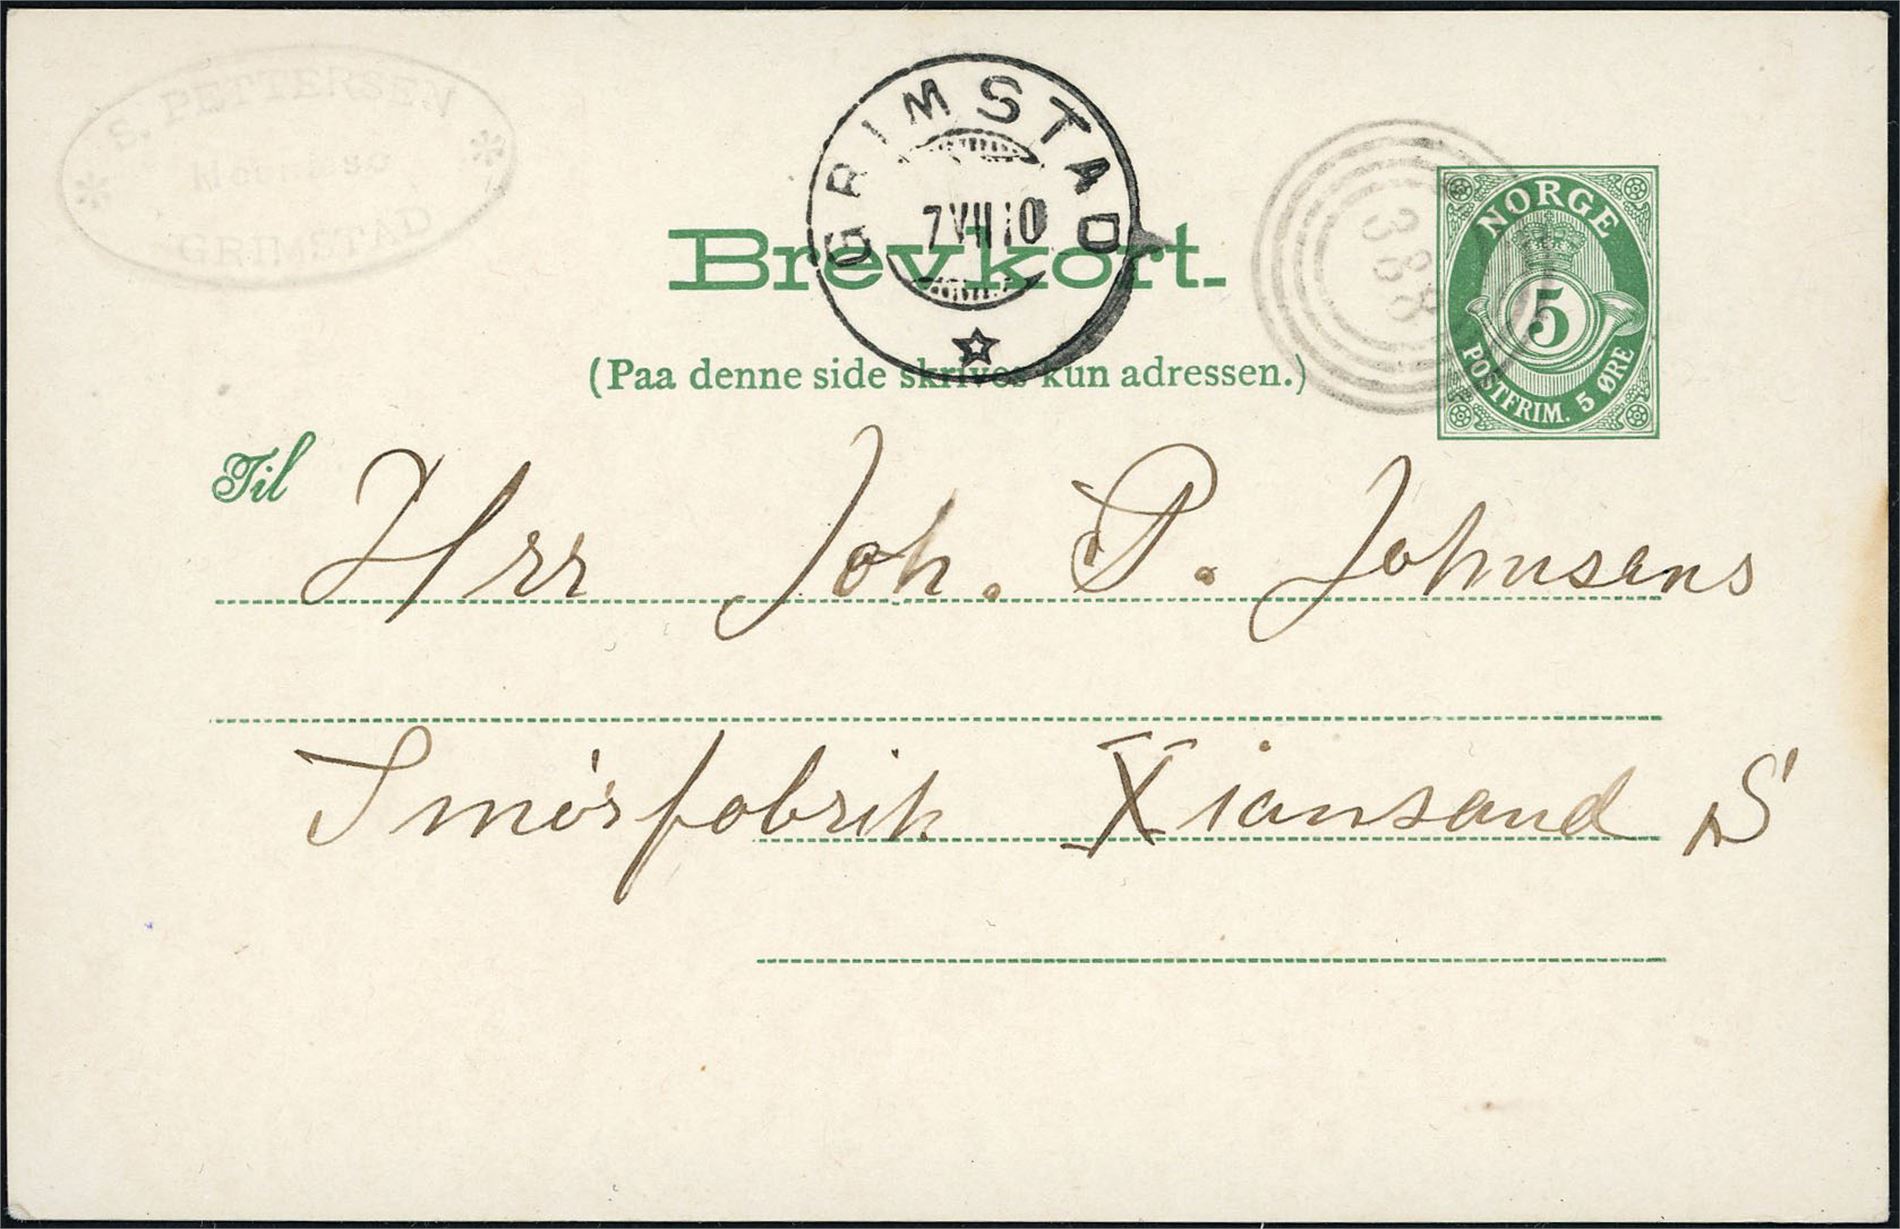 S. PETTERSEN
GRIMSTAD
GRIMSTAD
7 VII 10
Brevkort.
(Paa denne side skrives kun adressen.)
388
NORGE
5
POSTFRIM. 5 ØRE
Til
Hrr Joh. P. Johnsens
Smörfabrik Xiansand S